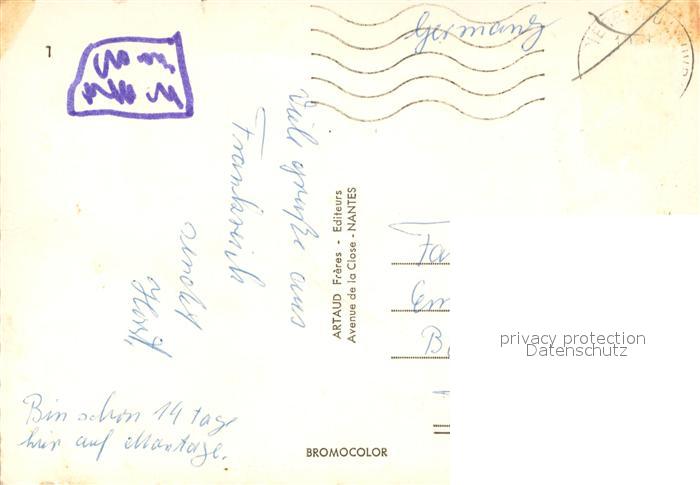 1
Germany
Viele grüße aus
Frankreich
sendet
Horst
Bin schon 14 tage
hier auf Montage.
ARTAUD Frères - Editeurs
Avenue de la Close - NANTES
Fa
Em
B
privacy protection
Datenschutz
BROMOCOLOR